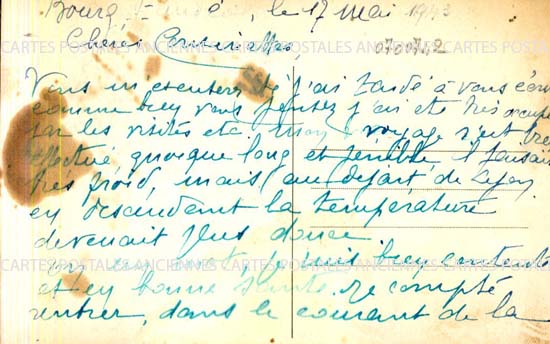 Bourg, le 17 mai 1943
Chères
0760742
Vous m'excuserez si j'ai tardé à vous écrire
comme bien vous pensez j'ai été très occupée
par les visites etc. mon voyage s'est très
effectué quoique long et pénible il faisait
très froid, mais au départ de Lyon
en descendant la température
devenait plus douce.
je suis bien contente
et en bonne santé. Je compte
rentrer, dans le courant de la
CARTES POSTALES ANCIENNES CARTES POSTALES ANCIENNES CARTES POSTALES